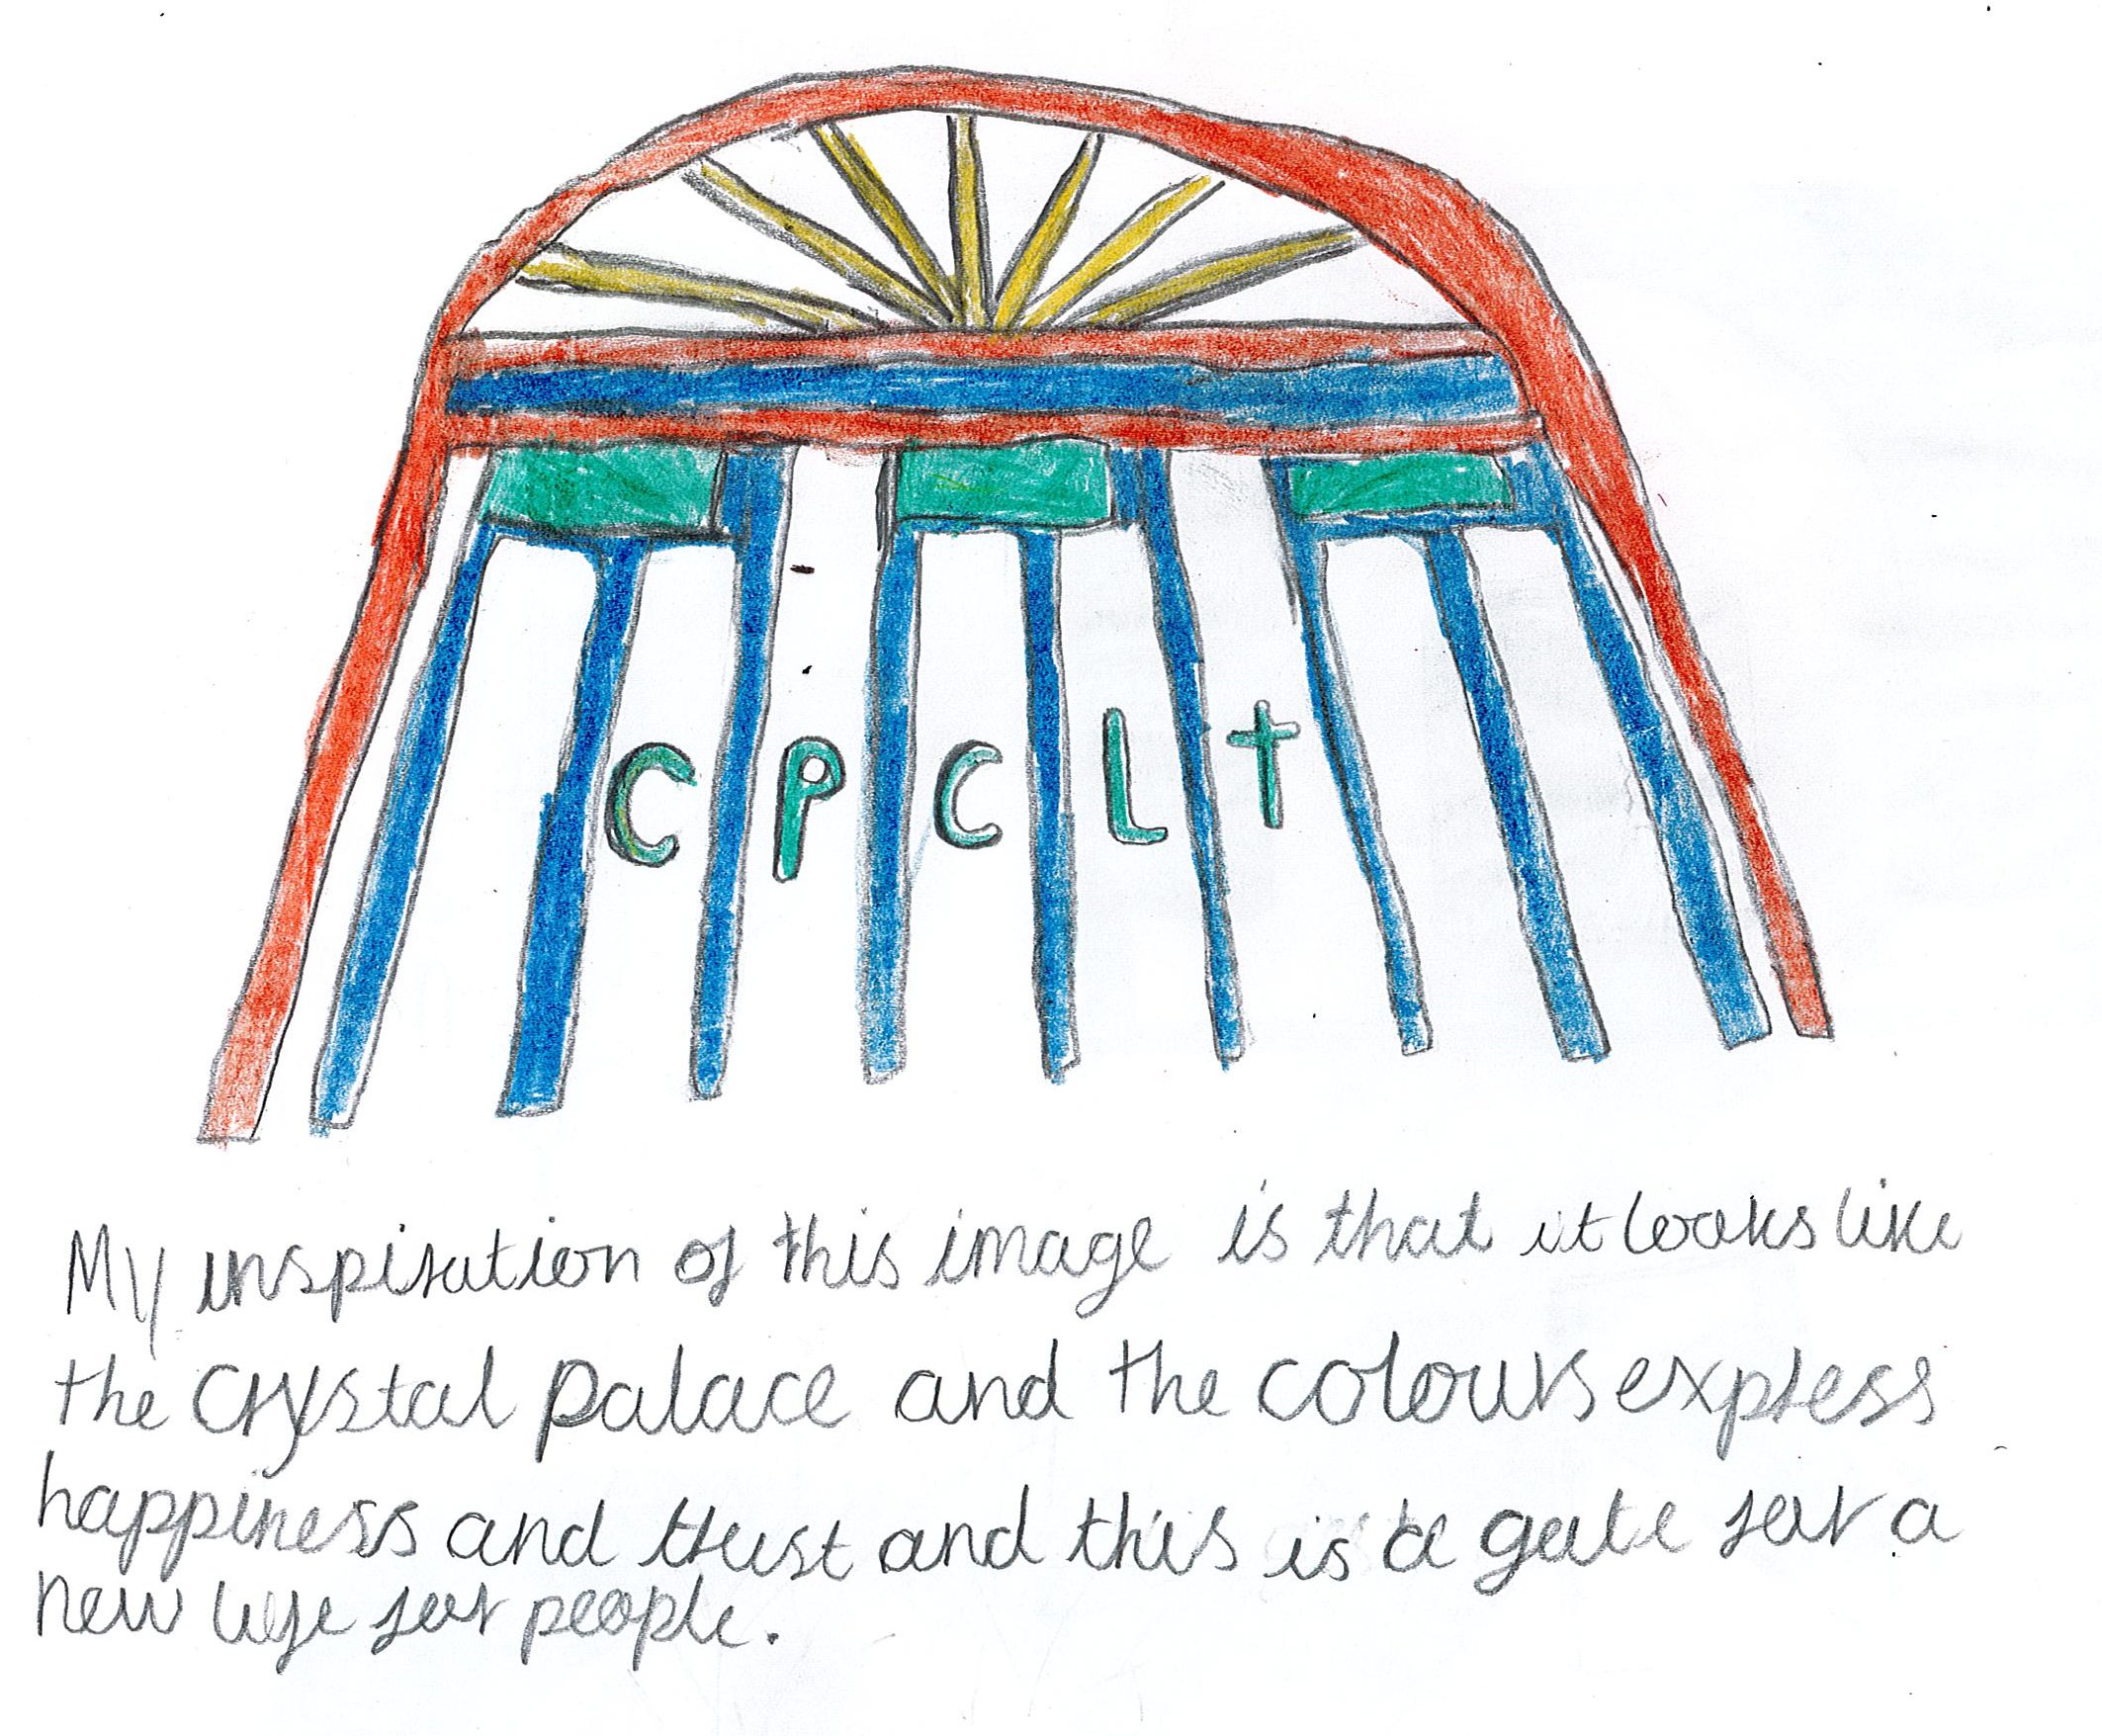 C P C L t
My inspiration of this image is that it looks like
the crystal palace and the colours express
happiness and trust and this is a gate for a
new life for people.